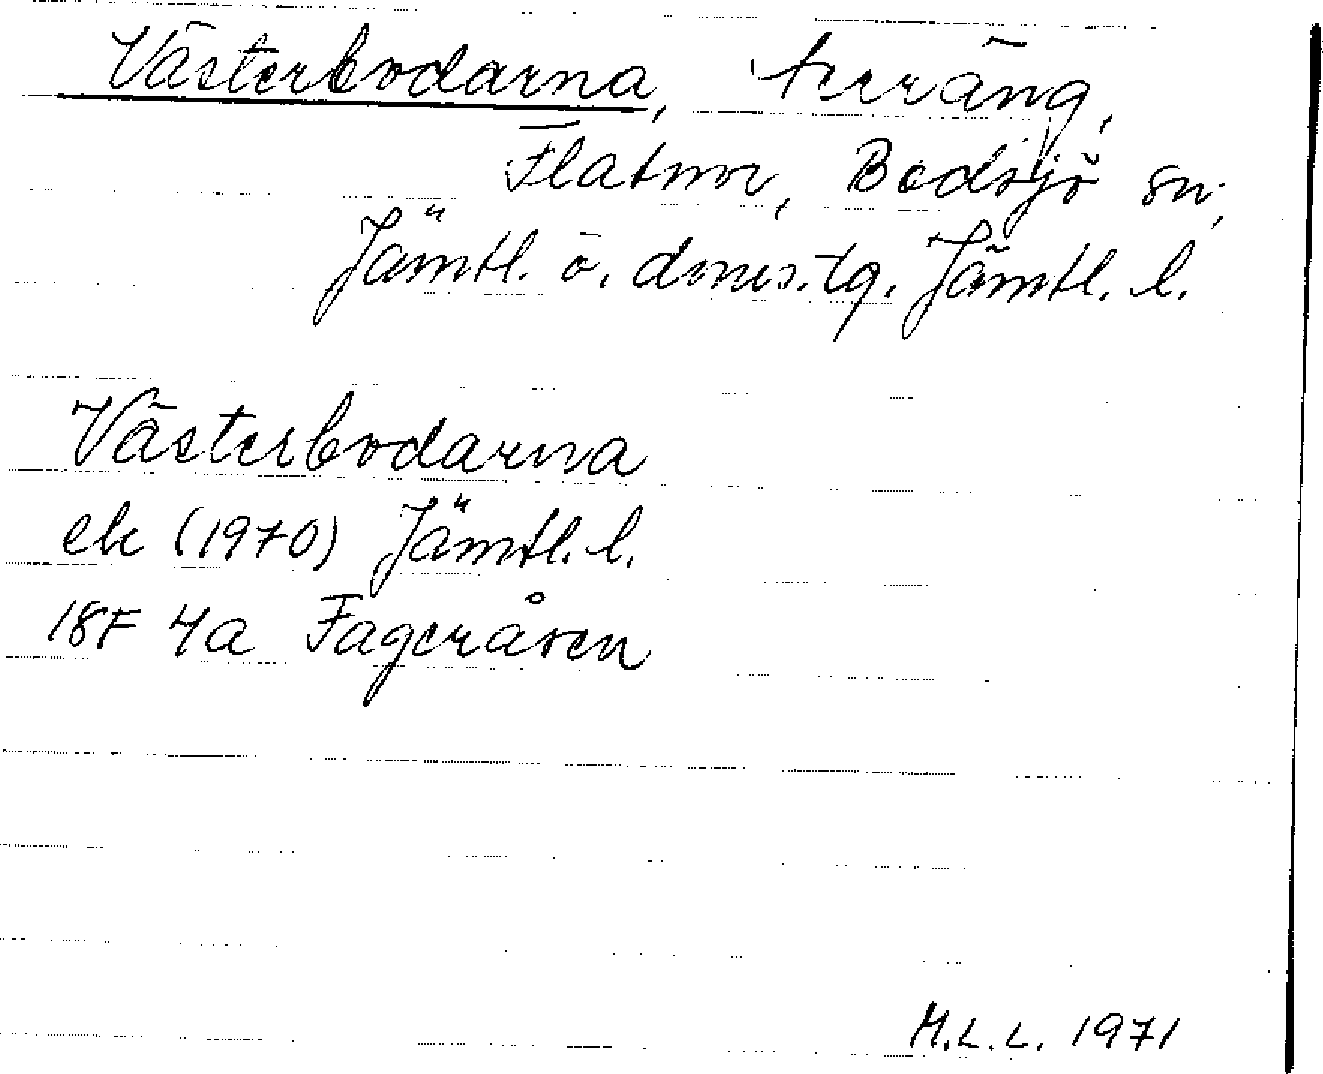 Västerbodarna, terräng,
Flatnor, Bodsjö sn,
Jämtl. ö. doms.tg. Jämtl. l.
Västerbodarna
ek (1970) Jämtl. l.
18F 4a Fageråsen
M.L.L. 1971